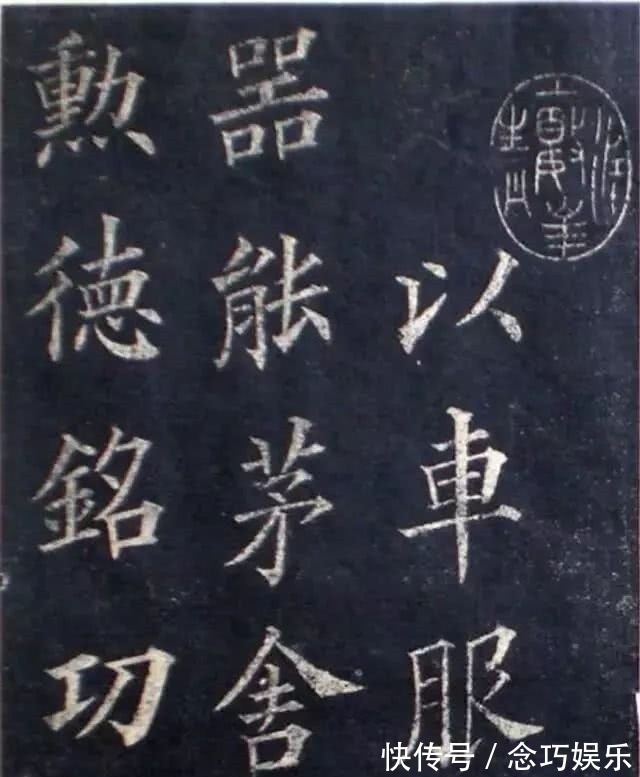 以車服
器能茅舍
勲徳銘功
快传号 / 念巧娱乐